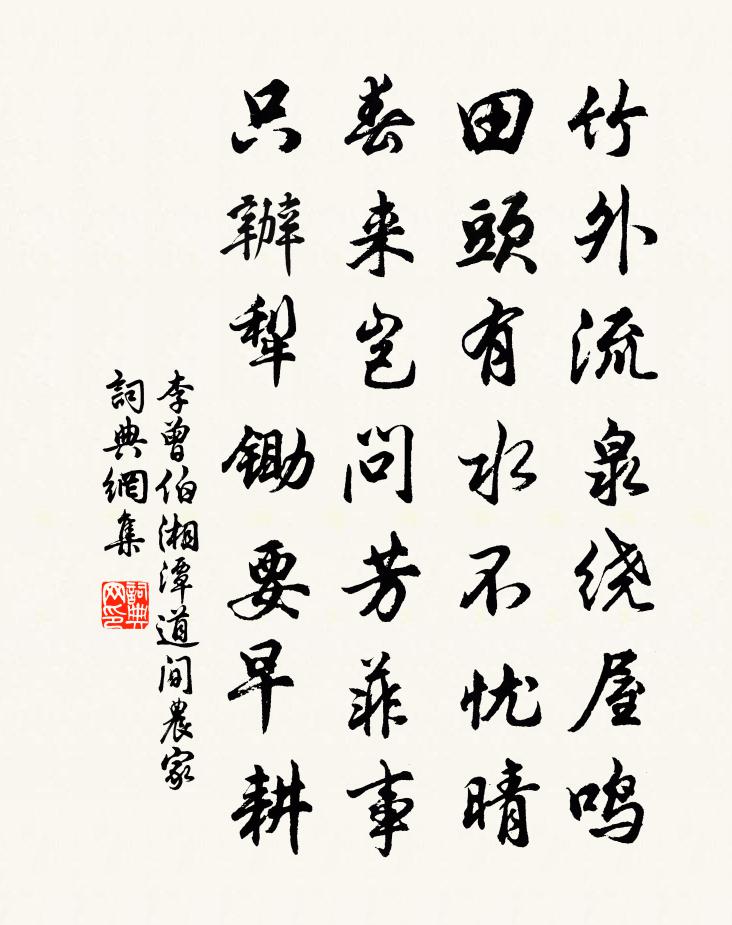 竹外流泉绕屋鸣
田頭有水不忧晴
春来岂问芳菲事
只辦犁锄要早耕
李曾伯湘潭道间農家
詞典網集
詞典网印